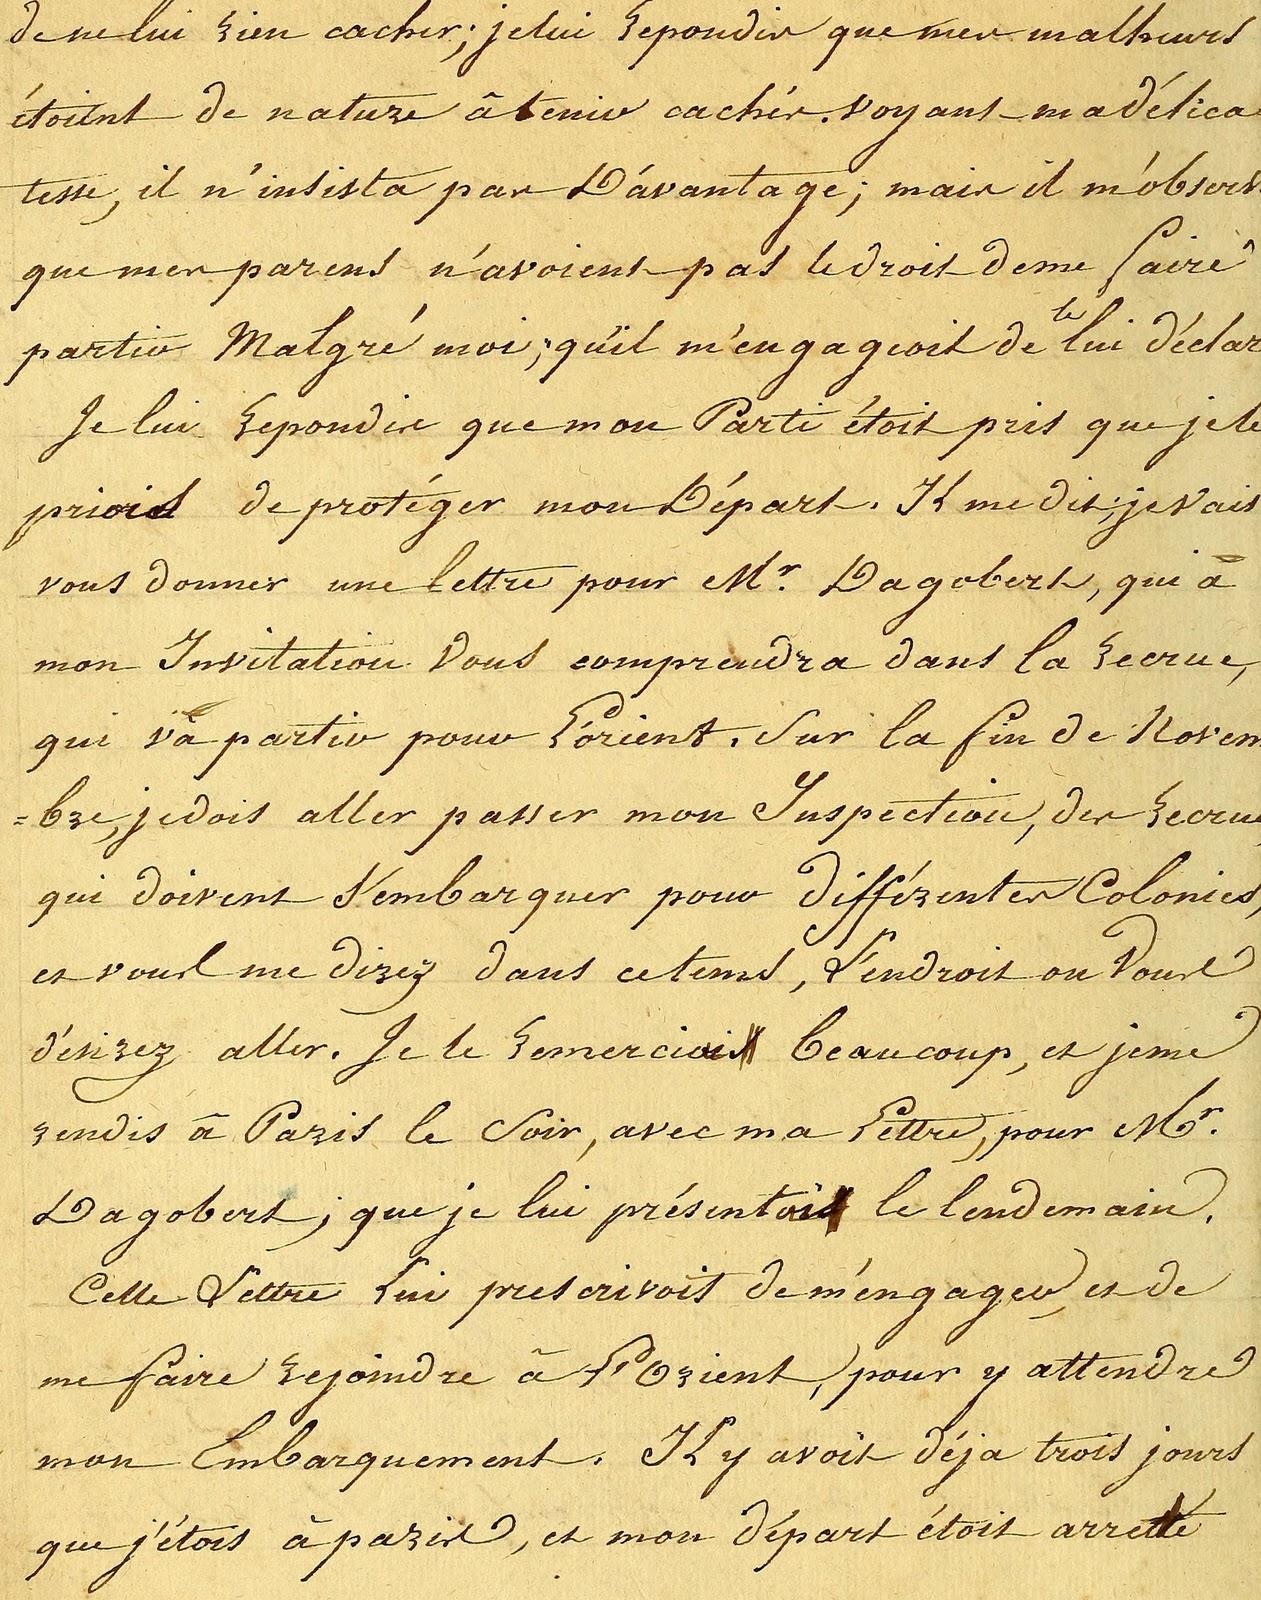 de ne lui rien cacher; je lui repondis que mes malheurs
étoient de nature à tenir cachés. voyant ma délica
tesse, il n'insista pas D'avantage; mais il m'observ
que mes parens n'avoient pas le droit de me faire
partir Malgré moi; qu'il m'engageoit de le lui déclar
Je lui repondis que mon Parti étoit pris que je le
priois de protéger mon Départ. Il me dit; je vais
vous donner une lettre pour Mr. Dagobert, qui à
mon Invitation vous comprendra dans la recrue,
qui và partir pour L'orient. Sur la fin de Novem
=bre, je dois aller passer mon Inspection, des recrue
qui doivent s'embarquer pour différentes Colonies,
et vous me direz dans ce tems, L'endroit ou vous
désirez aller. Je le remerciai beaucoup, et je me
rendis à Paris le Soir, avec ma Lettre, pour Mr.
Dagobert; que je lui présentai le lendemain.
Cette Lettre Lui prescrivoit de m'éngager, et de
me faire rejoindre à L'Orient, pour y attendre
mon Embarquement. Il y avoit déja trois jours
que j'étois à paris, et mon départ étoit arretté